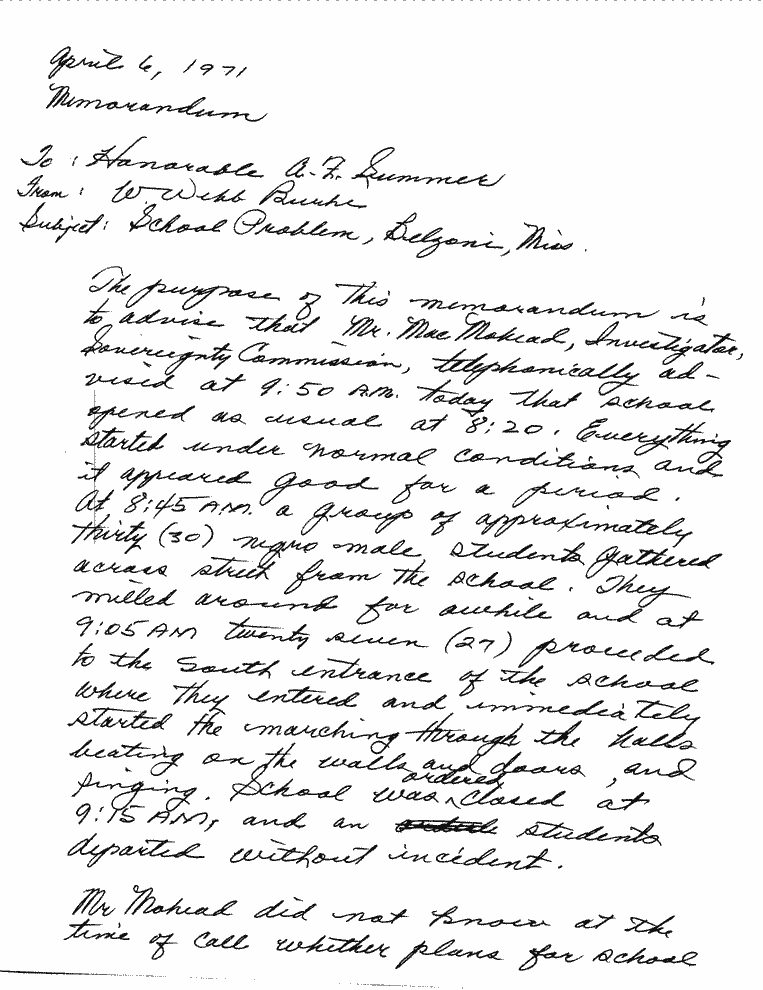 April 6, 1971
Memorandum
To: Honorable A.F. Summer
From: W. Webb Burke
Subject: School Problem, Belzoni, Miss.
The purpose of this memorandum is
to advise that Mr. Mac Mohead, Investigator,
Sovereignty Commission, telephonically ad-
vised at 9:50 A.M. today that school
opened as usual at 8:20. Everything
started under normal conditions and
it appeared good for a period.
At 8:45 A.M. a group of approximately
thirty (30) negro male students gathered
across street from the school. They
milled around for awhile and at
9:05 AM twenty seven (27) proceeded
to the South entrance of the school
where they entered and immediately
started the marching through the halls
beating on the walls and doors, and
singing. School was ordered closed at
9:15 AM, and an students
departed without incident.
Mr Mohead did not know at the
time of call whether plans for school